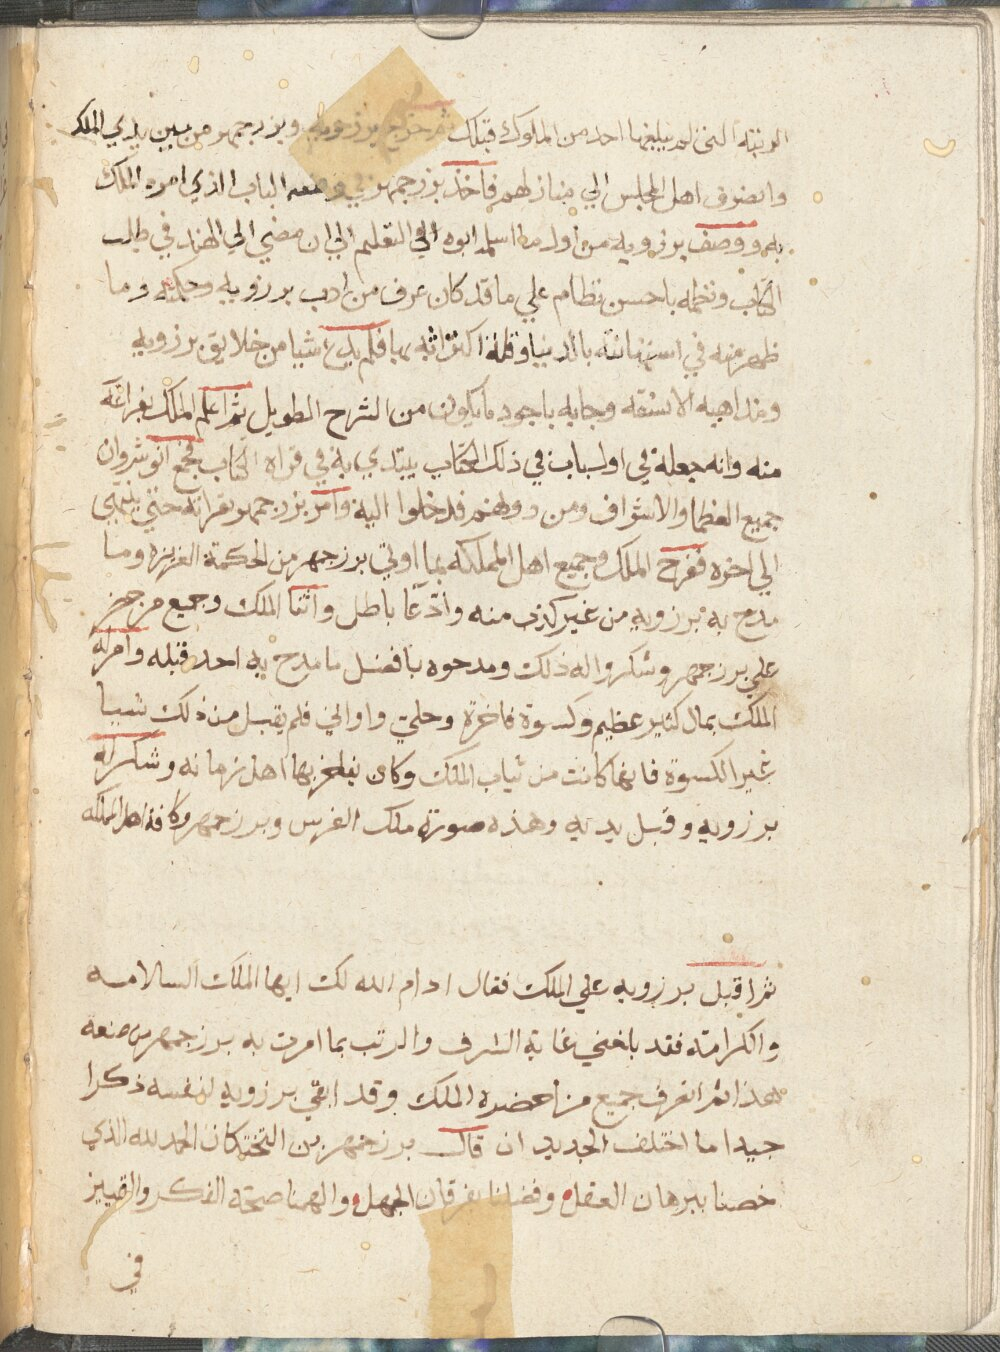 الرتبة التى لم يبلغها احد من الملوك قبلك ثم خرج برزويه وبزرجمهر من بين يدي الملك
وانصرف اهل المجلس الي منازلهم فاخذ بزرجمهر في وضعه الباب الذي امره الملك
به ووصف برزويه من اول ما اسلمه ابوه الي التعليم الي ان مضي الي الهند في طلب
الكتاب ونظمه باحسن نظام علي ما قد كان عرف من ادب برزويه وحكمته وما
ظهر منه في استهانته بالدنيا وقلة اكتراثه بها فلم يدع شيا من خلايق برزويه
ومذاهبه الا نسقه وجا به باجود ما يكون من الشرح الطويل ثم اعلم الملك بفراغه
منه وانه جعله في اول باب في ذلك الكتاب يبتدي به في قراة الكتاب فجمع انوشروان
جميع العظما والاشراف ومن دونهم فدخلوا اليه وامر بزرجمهر بقراته حتى ينتهى
الي اخره ففرح الملك وجميع اهل المملكه بما اوتي برزجمهر من الحكمة الغزيرة وما
مدح به برزويه من غير كذب منه وادعا باطل واثنا الملك وجميع من حضر
علي برزجمهر وشكروا له ذلك ومدحوه بافضل ما مدح به احد قبله وامر له
الملك بمال كثير عظيم وكسوة فاخرة وحلي واواني فلم يقبل من ذلك شيا
غير الكسوة فانها كانت من ثياب الملك وكان يفتخر بها اهل زمانه وشكر له
برزويه وقبل يديه وهذه صورة ملك الفرس وبرزجمهر وكافة اهل المملكه
ثم اقبل برزويه علي الملك فقال ادام الله لك ايها الملك السلامه
والكرامة فقد بلغني غاية الشرف والرتب بما امرت به برزجمهر من صنعه
هذا ثم انصرف جميع من بحضرة الملك وقد ابقي برزويه لنفسه ذكرا
جيدا ما اختلف الجديدان قال برزجمهر بن البختكان الحمد لله الذي
خصنا ببرهان العقل وفضلنا بفرقان الجهل والهمنا صحة الفكر والتمييز
في